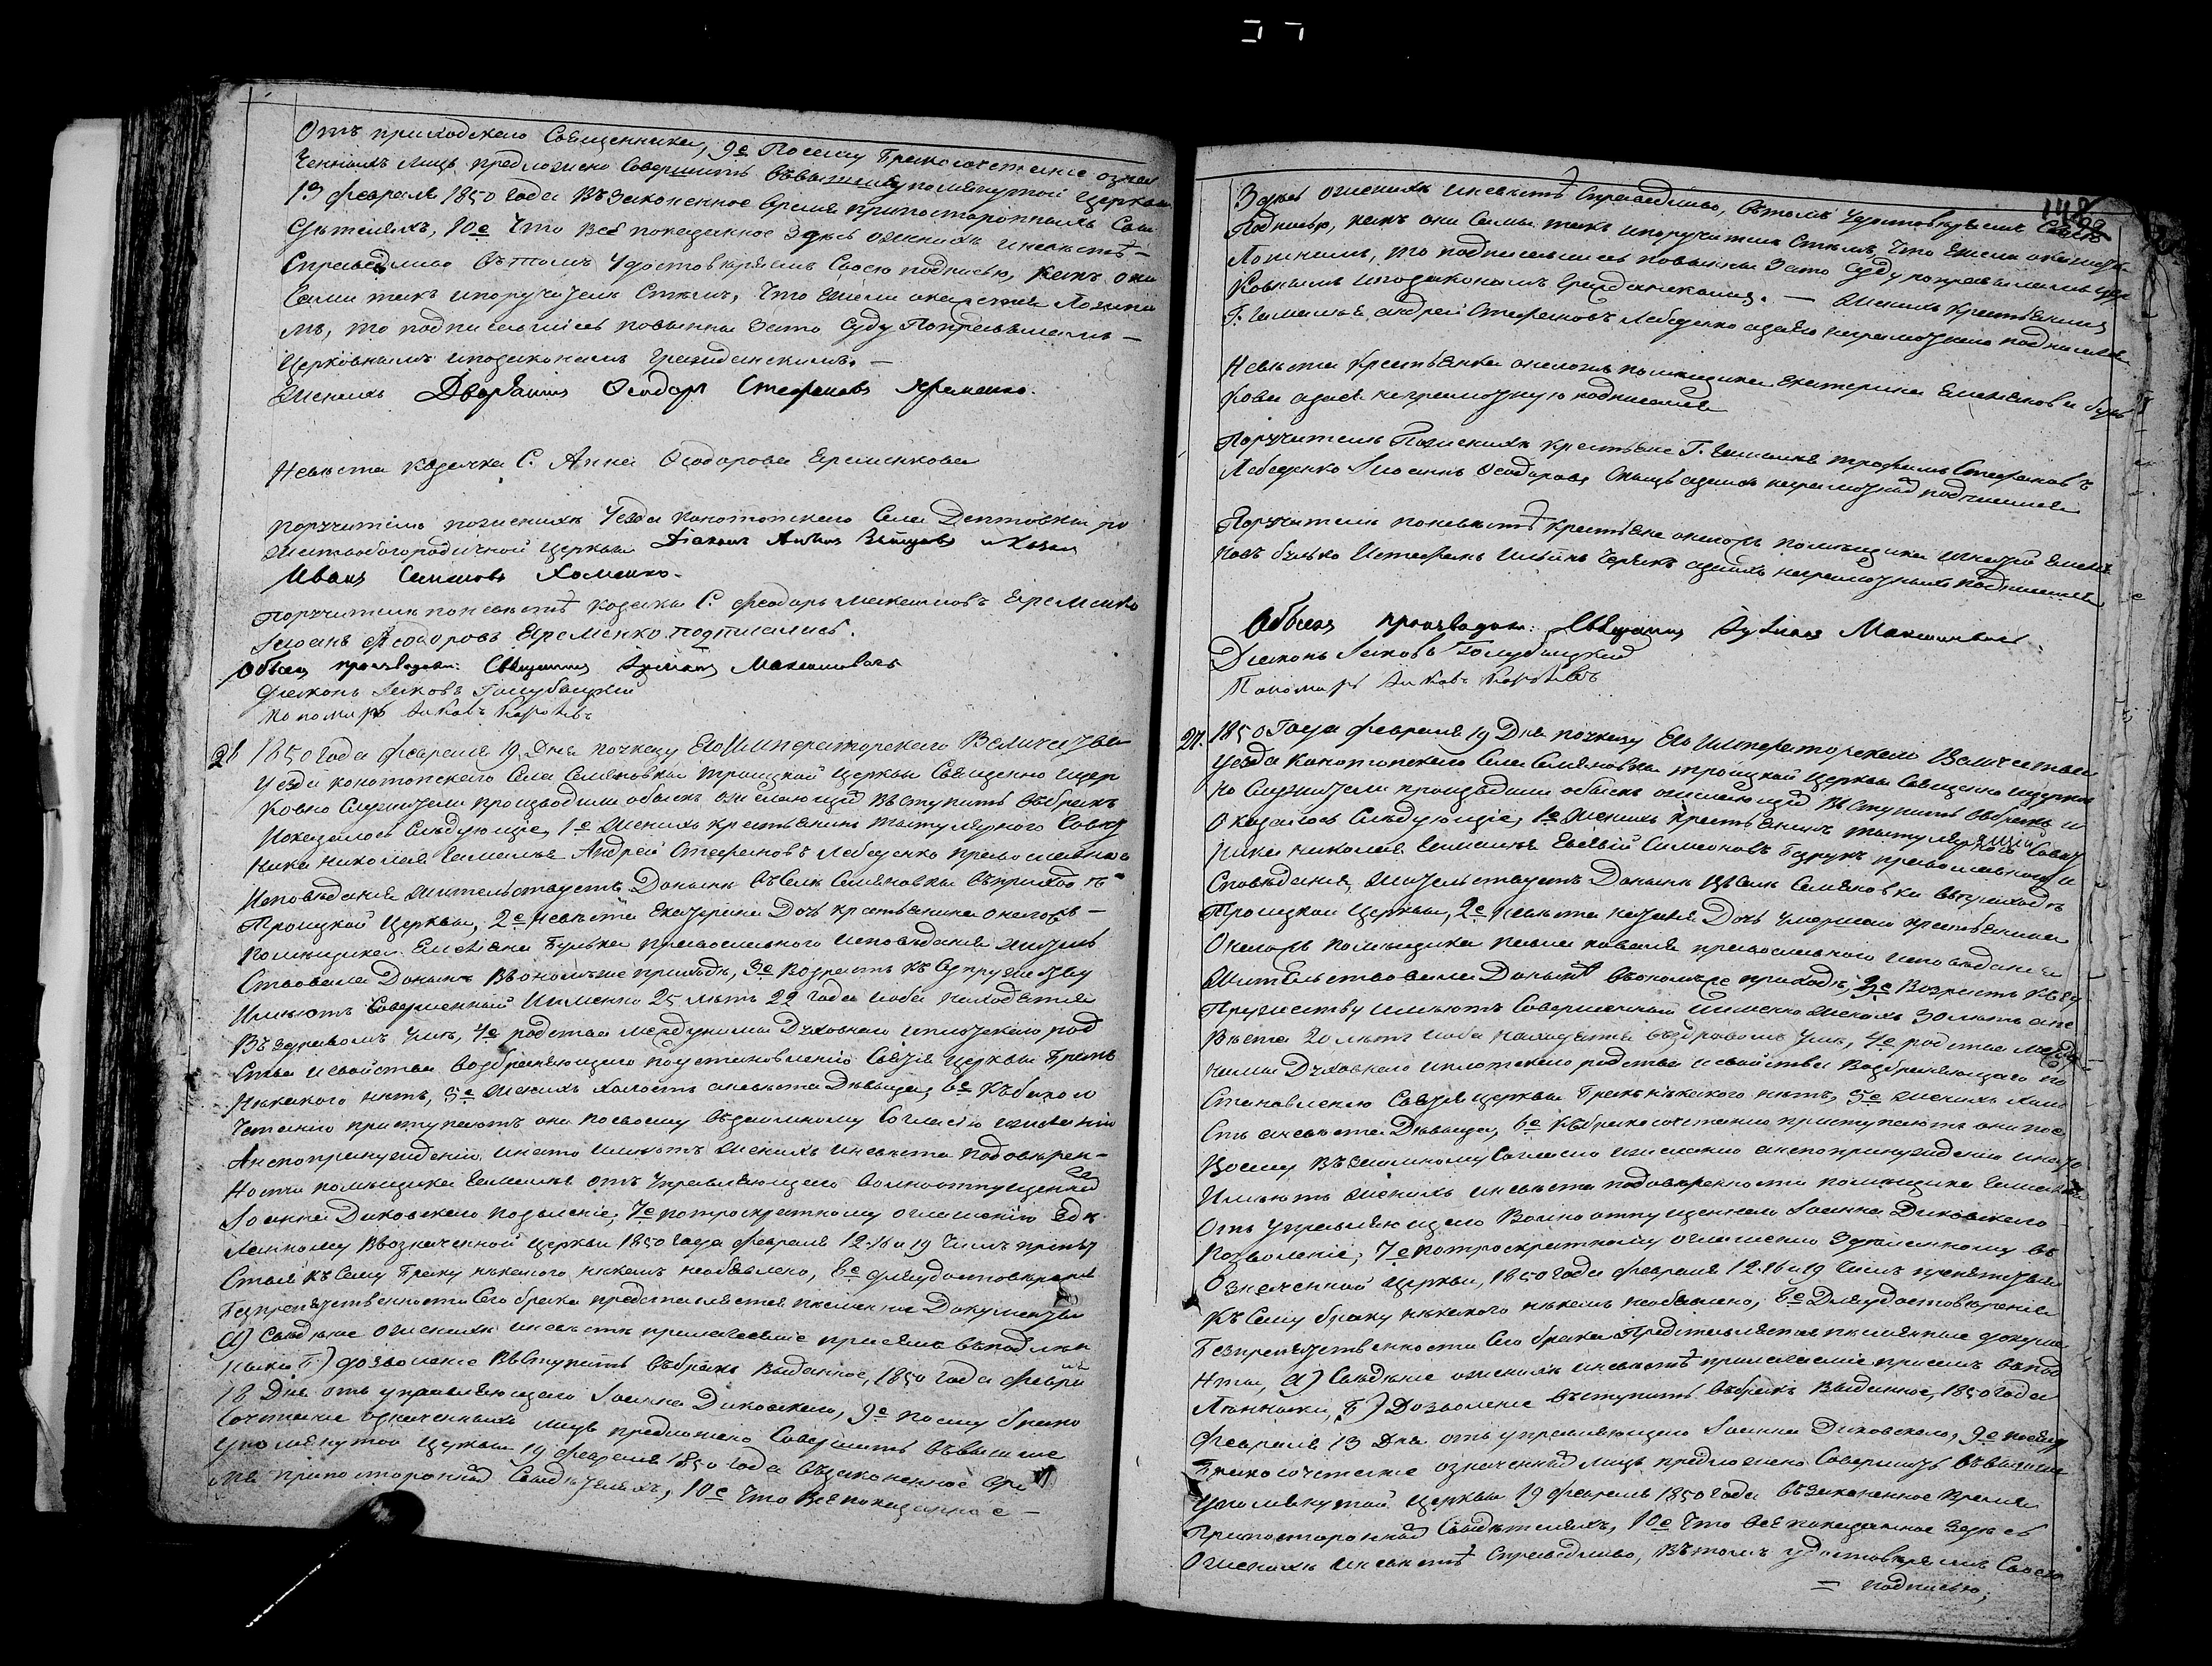 Отъ приходскаго Священника, 9е Посему Бракосочетание означ
ченныхъ лицъ предложено Совершить въвышеупомянутой Церкви
13 февраля 1850 года Въ Законенное время припостороннихъ Сви
дѣтеляхъ, 10е Что Всё показанное Здѣсь оженихѣ иневѣстѣ —
Справедливо Вътомъ Удостовѣряемъ Своею подписью, какъ они
Сами такъ ипоручители Стѣмъ, Что Ежели окажется Ложны
мъ, то подписавшиеся повинны Зато Суду Поправиламъ —
Церковнымъ ипозаконамъ Гражданскимъ. —
Женихъ Дворянинъ Феодоръ Стефановъ Яременко.
Невѣста козачка С. Анна Феодорова Еременкова
Поручители поженихѣ Уезда Конотопскаго Села Дептовки ро
жествобогородичной Церкви Дiаконъ
Иванъ Семеновъ Хоменко.
Поручители поневѣстѣ козаки С. Феодоръ Еременко
Иоанъ Феодоровъ Еременко подписались.
Обыскъ производили: Священникъ Максимовичъ
Диаконъ Иаковъ Голубицкий
Пономарь Иаковъ
28 1850 года Февраля 19 Дня поуказу Его Императорскаго Величества
Уезда Конотопскаго Села Семяновки Троицкой Церкви Священно ицер
ковно Служители производили обыскъ ожелающихъ Вступить Въбракъ
Показалось Слѣдующее, 1е Женихъ крестьянинъ титулярного Совѣт
ника Николая Андрей Стефановъ Лебеденко православнаго
Исповѣдания жительствуетъ Донынѣ въСелѣ Семяновки въприходѣ
Троицкой Церкви, 2е невѣста Екатерина Дочь крестьянина оногожъ —
Помѣщика Емелiана Булька православного исповѣдания житель
ствовала Донынѣ Вономъже приходѣ, 3е Возрастъ къ Супружеству
Имѣютъ Совершенный Именно 25 лѣтъ 22 года иоба находятся
Въздравомъ Умѣ, 4е родства междуними Духовнаго иплотскаго род
ства исвойства возбраняющаго поустановлению Святыя Церкви Бракъ
Никакого нѣтъ, 5е Женихъ холостъ аневѣста Дѣвица, 6е Къбракосо
четанию приступаютъ они посвоему взаимному Согласию ижеланию
Анепопринуждению, инато имѣютъ Женихъ иневѣста Подовѣрен-
ности помѣщика отъ Управляющаго вольноотпущеннаго
Иоанна Диковскаго позволение, 7е потроекратному оглашению Здѣ
ланному Ввозначенной Церкви 1850 года февраля 12. 16 и 19 Числъ препят
ствия къ Сему Браку никакого никемъ необъявлено, 8е Дляудостовѣрения
Безпрепятственности Сего брака представляются письменные Документы
А) Сведение оженихѣ иневѣстѣ прилагаемые присемъ въподлин
никѣ Б.) дозволение Вступить Въбракъ Выданное, 1850 года февра
18 Дня отъ управляющаго Иоанна Диковскаго, 9е посему брако
сочетание означенныхъ лицъ предложено Совершить въвыше
упомянутой Церкви 19 февраля 1850 года Взаконенное вре
мя припостороннихъ Свидѣтеляхъ, 10е Что Все показанное —
148
Здѣсь оженихѣ иневѣстѣ Справедливо, вътомъ Удостовѣряемъ Своею
Подписью, какъ они Сами такъ ипоручители Стѣмъ, Что Ежели окажется
Ложнымъ, то подписавшиеся повинны Зато Суду поправиламъ Цер
ковнымъ ипозаконамъ Гражданскимъ. — Женихъ Крестьянинъ
Г. Андрей Стефановъ Лебеденко азанего неграмотнаго подписался
Невѣста Крестьянка оногожъ помѣщика Екатерина Емелiянова Буль
кова азанея неграмотную подписался
Поручители Поженихѣ Крестьяне Г. Трофимъ Стефановъ
Лебеденко Иоаннъ Феодоровъ азанихъ неграмотныхъ подписался
Поручители поневѣстѣ Крестьяне оногожъ помѣщика Емелья
новъ Булько Истефанъ Ильинъ азанихъ неграмотныхъ подписался
Обыскъ производили: Священникъ Максимовичъ
Диаконъ Иаковъ Голубицкий
Пономарь Иаковъ
1850 Года Февраля 19 Дня поуказу Его Императорскаго Величества
Уезда Конотопскаго Села Семяновки Троицкой Церкви Священно ицерков
но Служители производили обыскъ ожелающихъ Вступить Вбракъ и
Оказалось Слѣдующие, 1е Женихъ Крестьянинъ титулярнаго Совѣт
ника Николая Симеоновъ православного и
Сповѣдания, жительствуетъ Донынѣ ВъСелѣ Семяновки въприходѣ
Троицкой Церкви, 2е Невѣста Дочь умершаго крестьянина
Оногожъ помѣщика православнаго исповѣдания
жительствовала Донынѣ въономъже приходѣ, 3е Возрастъ къСу
пружеству имѣютъ Совершенный Именно женихъ 30 лѣтъ ане
вѣста 20 лѣтъ иоба находятся въздравомъ Умѣ, 4е родства между
ними Духовнаго иплотскаго родства исвойства Возбраняющаго поу
становлению Святыя Церкви Бракъ никакого нѣтъ, 5е женихъ холо
стъ аневѣста Дѣвица, 6е къбракосочетанию приступаютъ они пос
воему Взаимному Согласию ижеланию анепопринуждению инато
Имѣютъ Женихъ иневѣста подовѣренности помѣщика
Отъ Управляющаго Вольноотпущеннаго Иоанна Диковскаго
Позволение, 7е потроекратному оглашению Здѣланному въ
Означенной Церкви, 1850 года февраля 12. 16 и 19 Числъ препятствия
Къ Сему браку никакого никемъ необъявлено, 8е Дляудостовѣрения
Безпрепятственности Сего брака Представляются письменные докуме
нты, А) Сведение оженихѣ иневѣстѣ прилагаемые присемъ въпод
линникѣ, Б) Дозволение въступить въбракъ Выданное, 1850 года
Февраля 13 Дня отъ управляющаго Иоанна Диковскаго, 9е посему
Бракосочетание означенныхъ лицъ предложено Совершить въвыше
Упомянутой Церкви 19 февраля 1850 года взаконенное время
Припостороннихъ Свидѣтеляхъ, 10е Что всё показанное здѣсь
Оженихѣ иневѣстѣ Справедливо, Вътомъ удостовѣряемъ Своею
= подписью;